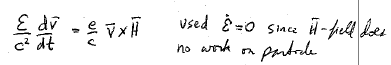 ℰ/c² dv̄/dt = e/c v̄ x H̄ used ℰ̇=0 since H̄-field does
no work on particle